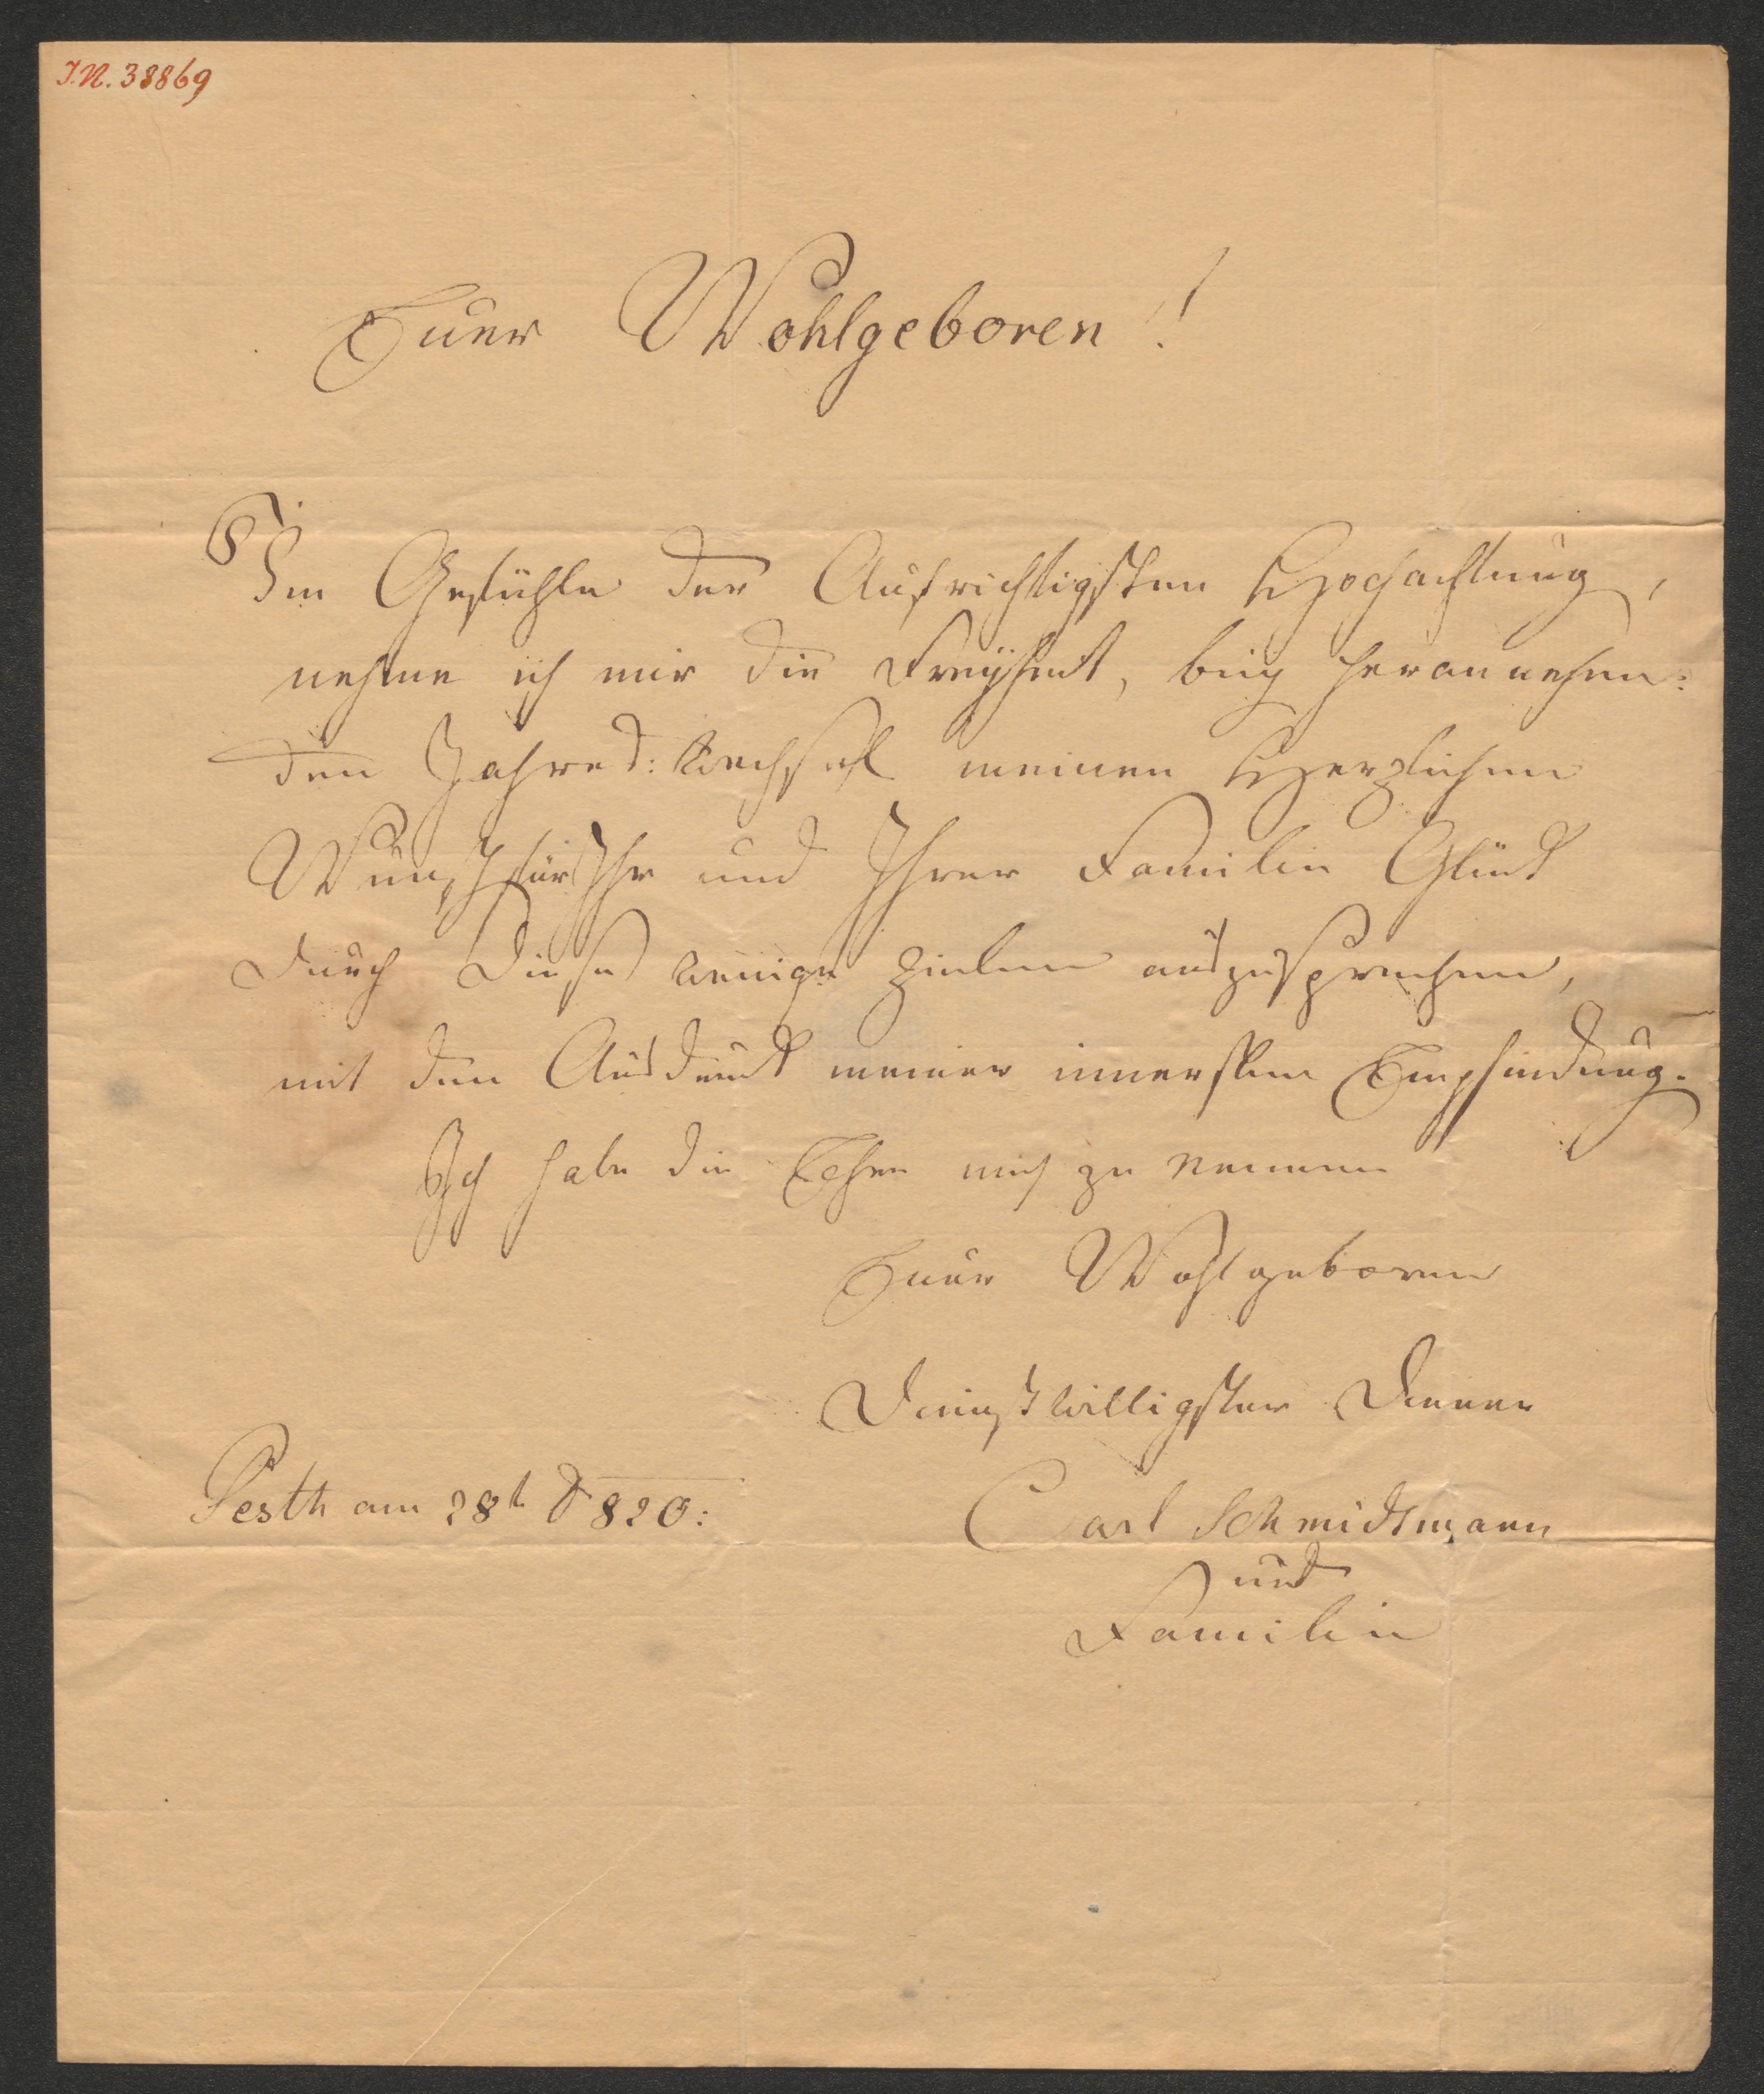 I.N. 38869
Euer Wohlgeboren!
Im Gefühle der Aufrichtigsten Hochachtung,
nehme ich mir die Freÿheit, beÿ herannehen:
den Jahres: Wechsel meinen Herzlichen
Wunsch für Ihr und Ihrer Familie Glück
durch diese wenige Zeilen auszusprechen,
mit den Ausdruck meiner innersten Empfindung.
Ich habe die Ehre mich zu nennen
Euer Wohlgeboren
Dienstwilligster Diener
Pesth am 28t 820:
Carl Schmidtmann
und
Familie